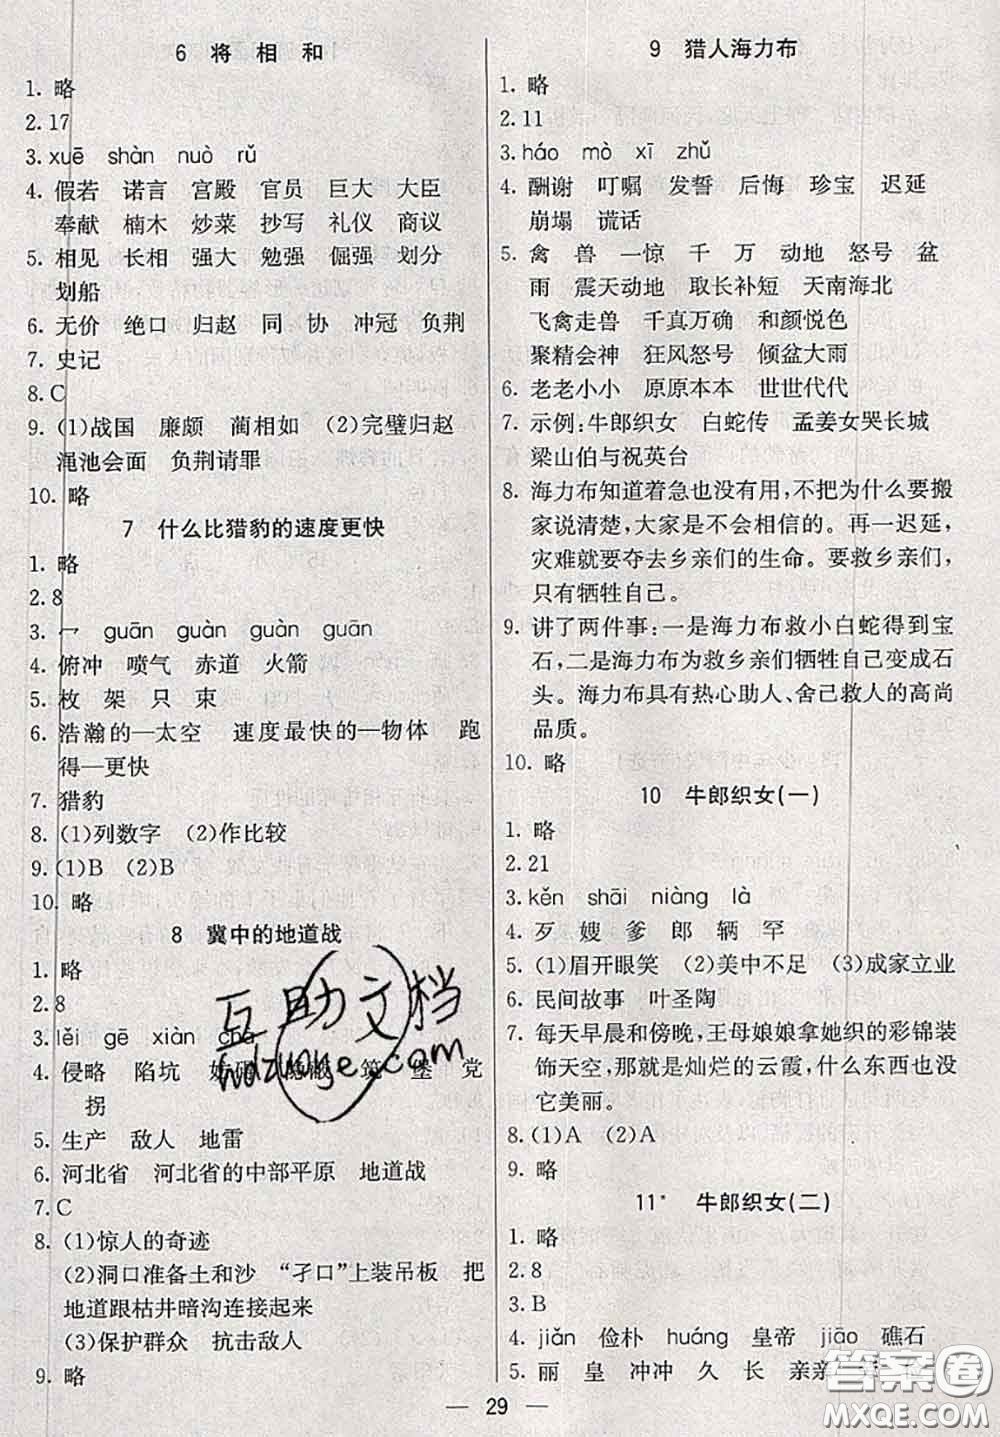 6 将相和
1. 略
2. 17
3. xuē shàn nuò rǔ
4. 假若 诺言 宫殿 官员 巨大 大臣
奉献 楠木 炒菜 抄写 礼仪 商议
5. 相见 长相 强大 勉强 倔强 划分
划船
6. 无价 绝口 归赵 同 协 冲冠 负荆
7. 史记
8. C
9. (1)战国 廉颇 蔺相如 (2)完璧归赵
渑池会面 负荆请罪
10. 略
7 什么比猎豹的速度更快
1. 略
2. 8
3. 冖 guān guàn guàn guān
4. 俯冲 喷气 赤道 火箭
5. 枚 架 只 束
6. 浩瀚的—太空 速度最快的—物体 跑
得—更快
7. 猎豹
8. (1)列数字 (2)作比较
9. (1)B (2)B
10. 略
8 冀中的地道战
1. 略
2. 8
3. lěi gē xiàn
4. 侵略 陷坑 堡 党
拐
5. 生产 敌人 地雷
6. 河北省 河北省的中部平原 地道战
7. C
8. (1)惊人的奇迹
(2)洞口准备土和沙 “孑口”上装吊板 把
地道跟枯井暗沟连接起来
(3)保护群众 抗击敌人
9. 略
9 猎人海力布
1. 略
2. 11
3. háo mò xī zhǔ
4. 酬谢 叮嘱 发誓 后悔 珍宝 迟延
崩塌 谎话
5. 禽 兽 一惊 千 万 动地 怒号 盆
雨 震天动地 取长补短 天南海北
飞禽走兽 千真万确 和颜悦色
聚精会神 狂风怒号 倾盆大雨
6. 老老小小 原原本本 世世代代
7. 示例:牛郎织女 白蛇传 孟姜女哭长城
梁山伯与祝英台
8. 海力布知道着急也没有用,不把为什么要搬
家说清楚,大家是不会相信的。再一迟延,
灾难就要夺去乡亲们的生命。要救乡亲们,
只有牺牲自己。
9. 讲了两件事:一是海力布救小白蛇得到宝
石,二是海力布为救乡亲们牺牲自己变成石
头。海力布具有热心助人、舍己救人的高尚
品质。
10. 略
10 牛郎织女(一)
1. 略
2. 21
3. kěn shāi niàng là
4. 歹 嫂 爹 郎 辆 罕
5. (1)眉开眼笑 (2)美中不足 (3)成家立业
6. 民间故事 叶圣陶
7. 每天早晨和傍晚,王母娘娘拿她织的彩锦装
饰天空,那就是灿烂的云霞,什么东西也没
它美丽。
8. (1)A (2)A
9. 略
11* 牛郎织女(二)
1. 略
2. 8
3. B
4. jiǎn 俭朴 huáng 皇帝 jiāo 礁石
5. 丽 皇 冲冲 久 长 亲亲
29
互助文档
hdzuoye.com
答案圈
MXQE.COM